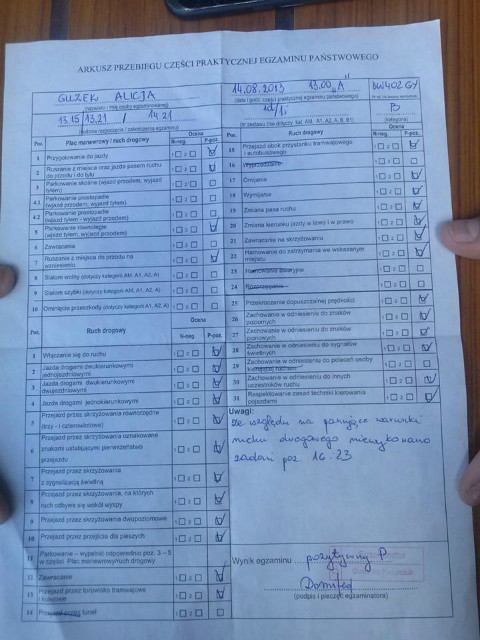 ARKUSZ PRZEBIEGU CZĘŚCI PRAKTYCZNEJ EGZAMINU PAŃSTWOWEGO
GUZEK ALICJA
(nazwisko i imię osoby egzaminowanej)
14.08.2013 13.00 "A"
(data i godz. części praktycznej egzaminu państwowego)
DW402GY
13.15 13.21 / 14.21
(godzina rozpoczęcia / zakończenia egzaminu)
B
(kategoria)
Poz. Plac manewrowy / ruch drogowy Ocena
N-neg. P-poz.
1 Przygotowanie do jazdy 1 2
2 Ruszanie z miejsca oraz jazda pasem ruchu do przodu i do tyłu 1 2
3 Parkowanie skośne (wjazd przodem, wyjazd tyłem) 1 2
4.1 Parkowanie prostopadłe (wjazd przodem, wyjazd tyłem) 1 2
4.2 Parkowanie prostopadłe (wjazd tyłem - wyjazd przodem) 1 2
5 Parkowanie równoległe (wjazd tyłem, wyjazd przodem) 1 2
6 Zawracanie 1 2
7 Ruszanie z miejsca do przodu na wzniesieniu 1 2
8 Slalom wolny (dotyczy kategorii AM, A1, A2, A) 1 2
9 Slalom szybki (dotyczy kategorii AM, A1, A2, A) 1 2
10 Ominięcie przeszkody (dotyczy kategorii A1, A2, A) 1 2
Poz. Ruch drogowy Ocena
N-neg. P-poz.
1 Włączanie się do ruchu 1 2
2 Jazda drogami dwukierunkowymi jednojezdniowymi 1 2
3 Jazda drogami dwukierunkowymi dwujezdniowymi 1 2
4 Jazda drogami jednokierunkowymi 1 2
5 Przejazd przez skrzyżowania równorzędne (trzy - i czterowlotowe) 1 2
6 Przejazd przez skrzyżowania oznakowane znakami ustalającymi pierwszeństwo przejazdu 1 2
7 Przejazd przez skrzyżowania z sygnalizacją świetlną 1 2
8 Przejazd przez skrzyżowania, na których ruch odbywa się wokół wyspy 1 2
9 Przejazd przez skrzyżowania dwupoziomowe 1 2
10 Przejazd przez przejścia dla pieszych 1 2
11 Parkowanie – wypełnić odpowiednio poz. 3 – 5 w części: Plac manewrowy/ruch drogowy
12 Zawracanie 1 2
13 Przejazd przez torowisko tramwajowe i kolejowe 1 2
14 Przejazd przez tunel 1 2
Poz. Ruch drogowy Ocena
N-neg. P-poz.
15 Przejazd obok przystanku tramwajowego i autobusowego 1 2
16 Wyprzedzanie 1 2
17 Omijanie 1 2
18 Wymijanie 1 2
19 Zmiana pasa ruchu 1 2
20 Zmiana kierunku jazdy w lewo i w prawo 1 2
21 Zawracanie na skrzyżowaniu 1 2
22 Hamowanie do zatrzymania we wskazanym miejscu 1 2
23 Hamowanie awaryjne 1 2
24
25 Przekroczenie dopuszczalnej prędkości 1 2
26 Zachowanie w odniesieniu do znaków poziomych 1 2
27 Zachowanie w odniesieniu do znaków pionowych 1 2
28 Zachowanie w odniesieniu do sygnałów świetlnych 1 2
29 Zachowanie w odniesieniu do poleceń osoby kierującej ruchem 1 2
30 Zachowanie w odniesieniu do innych uczestników ruchu 1 2
31 Respektowanie zasad techniki kierowania pojazdami 1 2
Uwagi:
Ze względu na panujące warunki
ruchu drogowego nie wykonano
zadań poz 16.23
Wynik egzaminu pozytywny P
(podpis i pieczęć egzaminatora)